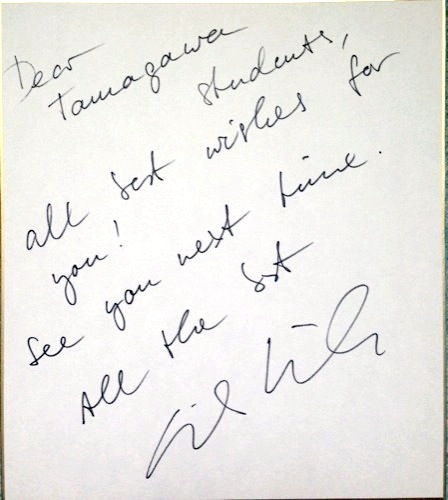 Dear
Tamagawa
students,
all best wishes for
you!
See you next time.
All the best